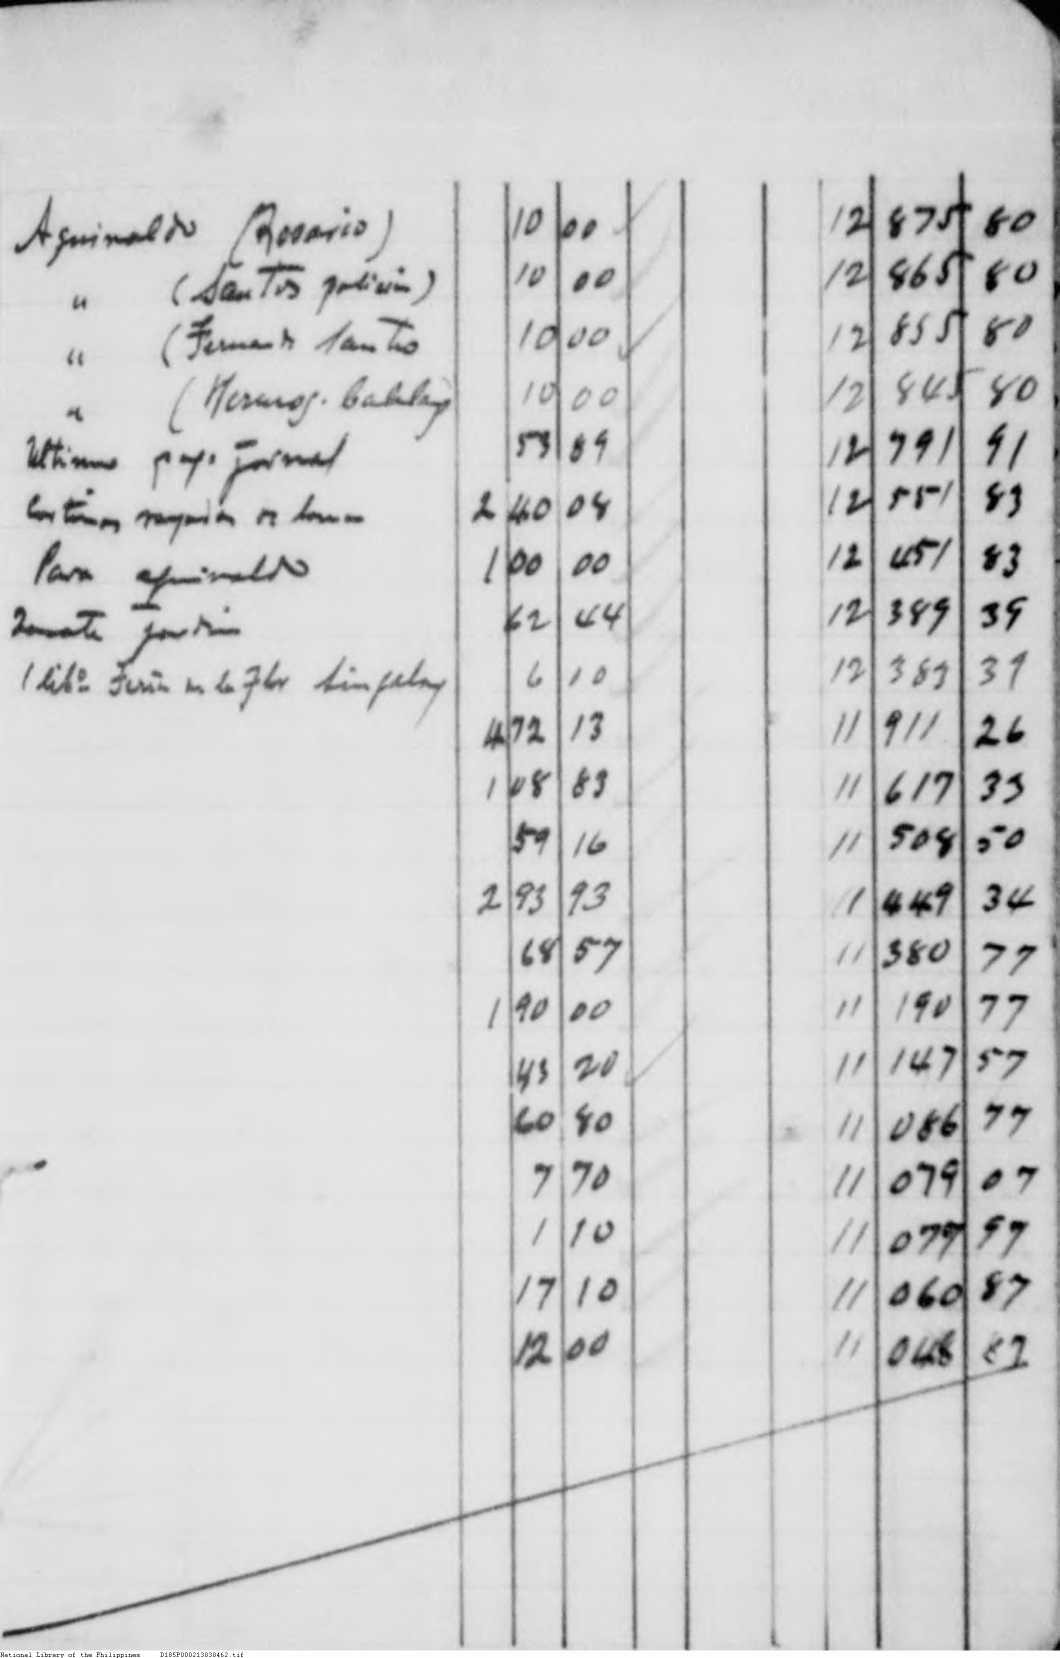 Aguinaldo (Rosario) 10 00 12 875 80
" (Santos policia) 10 00 12 865 80
" (Fernando Santos 10 00 12 855 80
" ( 10 00 12 845 80
Ultimo pago 53 89 12 791 91
2 40 08 12 551 83
Para aguinaldo 1 00 00 12 451 83
62 44 12 389 39
6 10 12 383 39
4 72 13 11 911 26
1 08 83 11 617 33
59 16 11 508 50
2 93 93 11 449 34
68 57 11 380 77
1 90 00 11 190 77
43 20 11 147 57
60 80 11 086 77
7 70 11 079 07
1 10 11 077 97
17 10 11 060 87
12 00 11 048 87
National Library of the Philippines D185P000213830462.tif